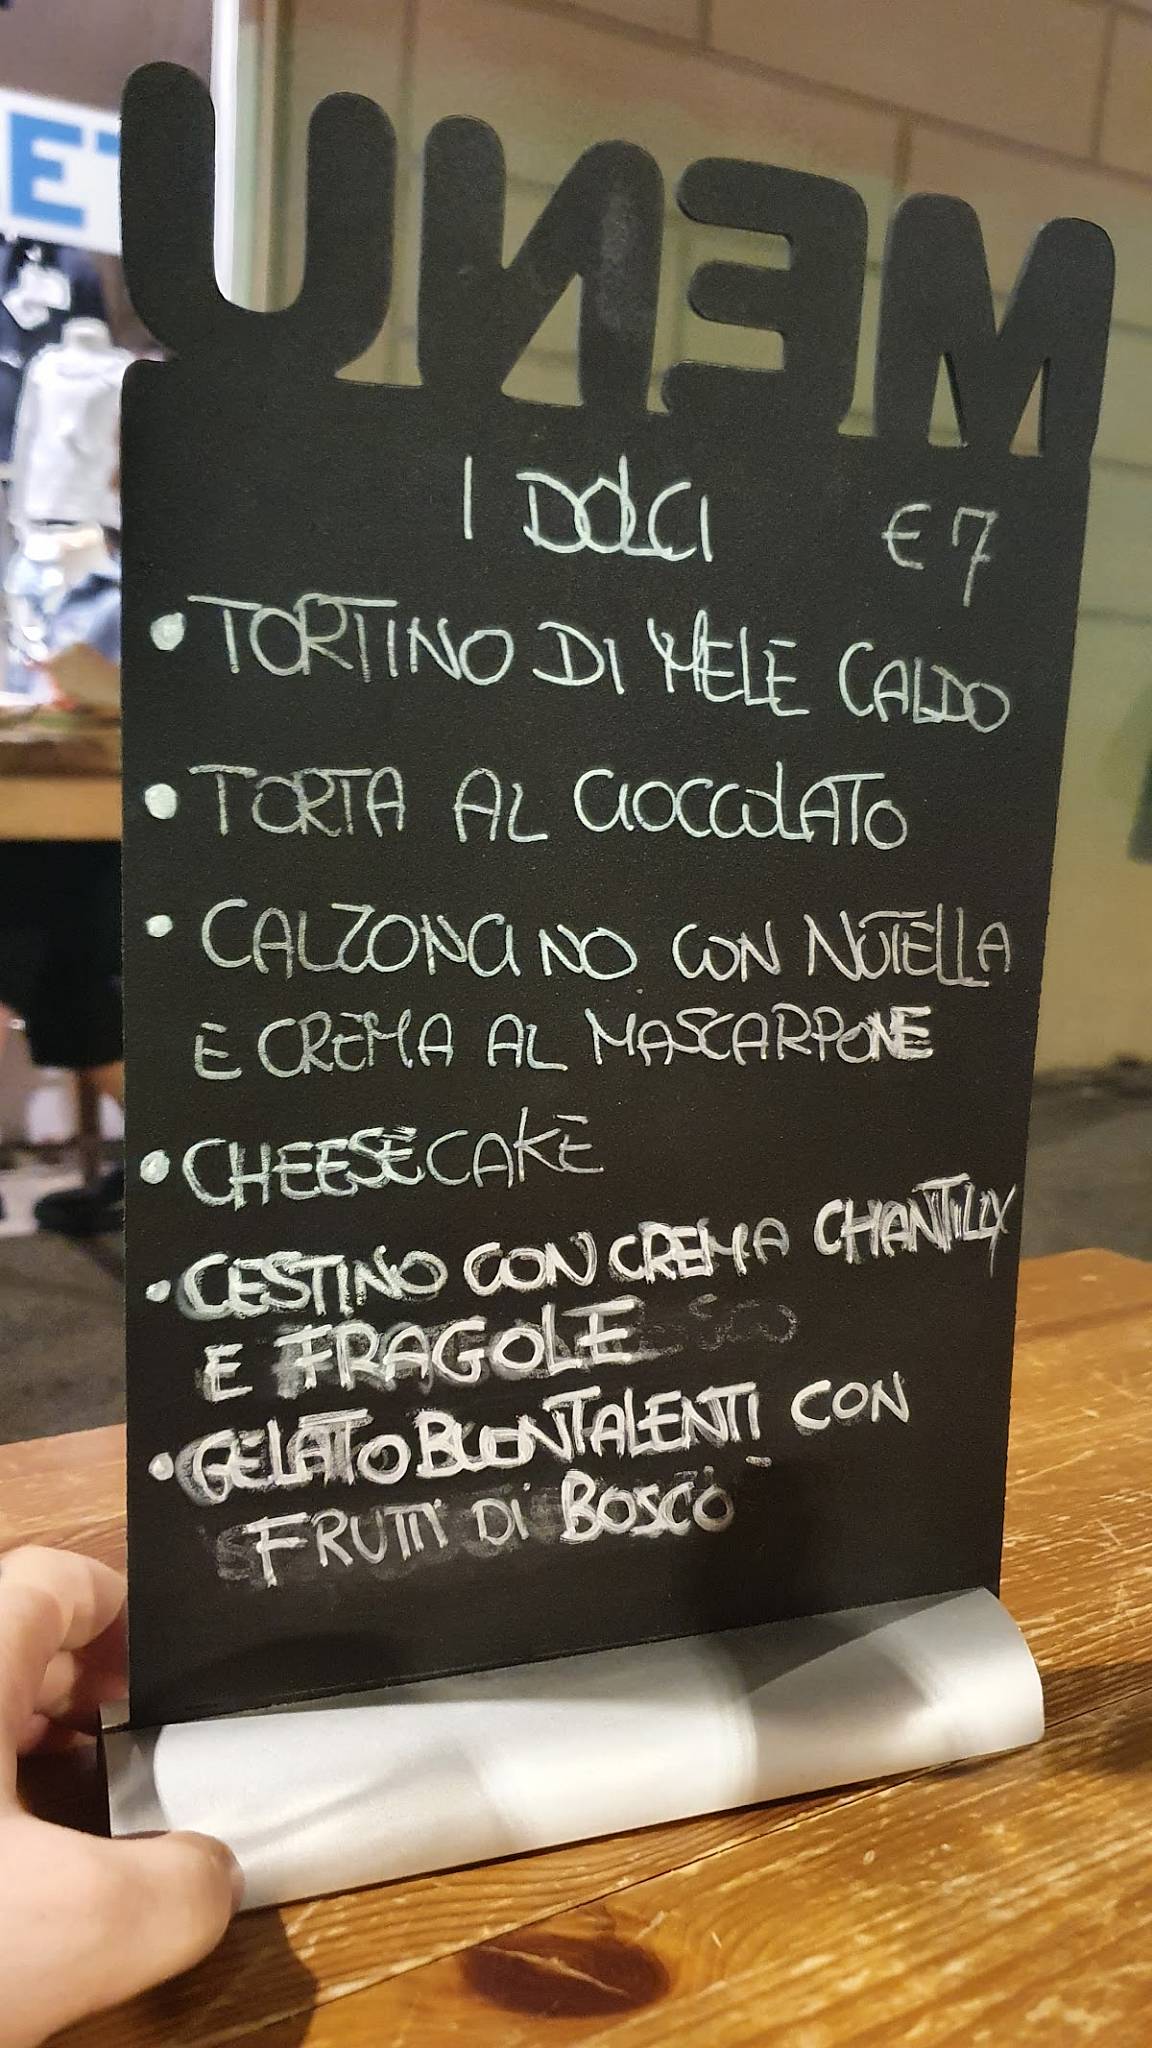 MENU
I DOLCI €7
• TORTINO DI MELE CALDO
• TORTA AL CIOCCOLATO
• CALZONCINO CON NUTELLA
E CREMA AL MASCARPONE
• CHEESECAKE
• CESTINO CON CREMA CHANTILLY
E FRAGOLE
• GELATO BUONTALENTI CON
FRUTTI DI BOSCO